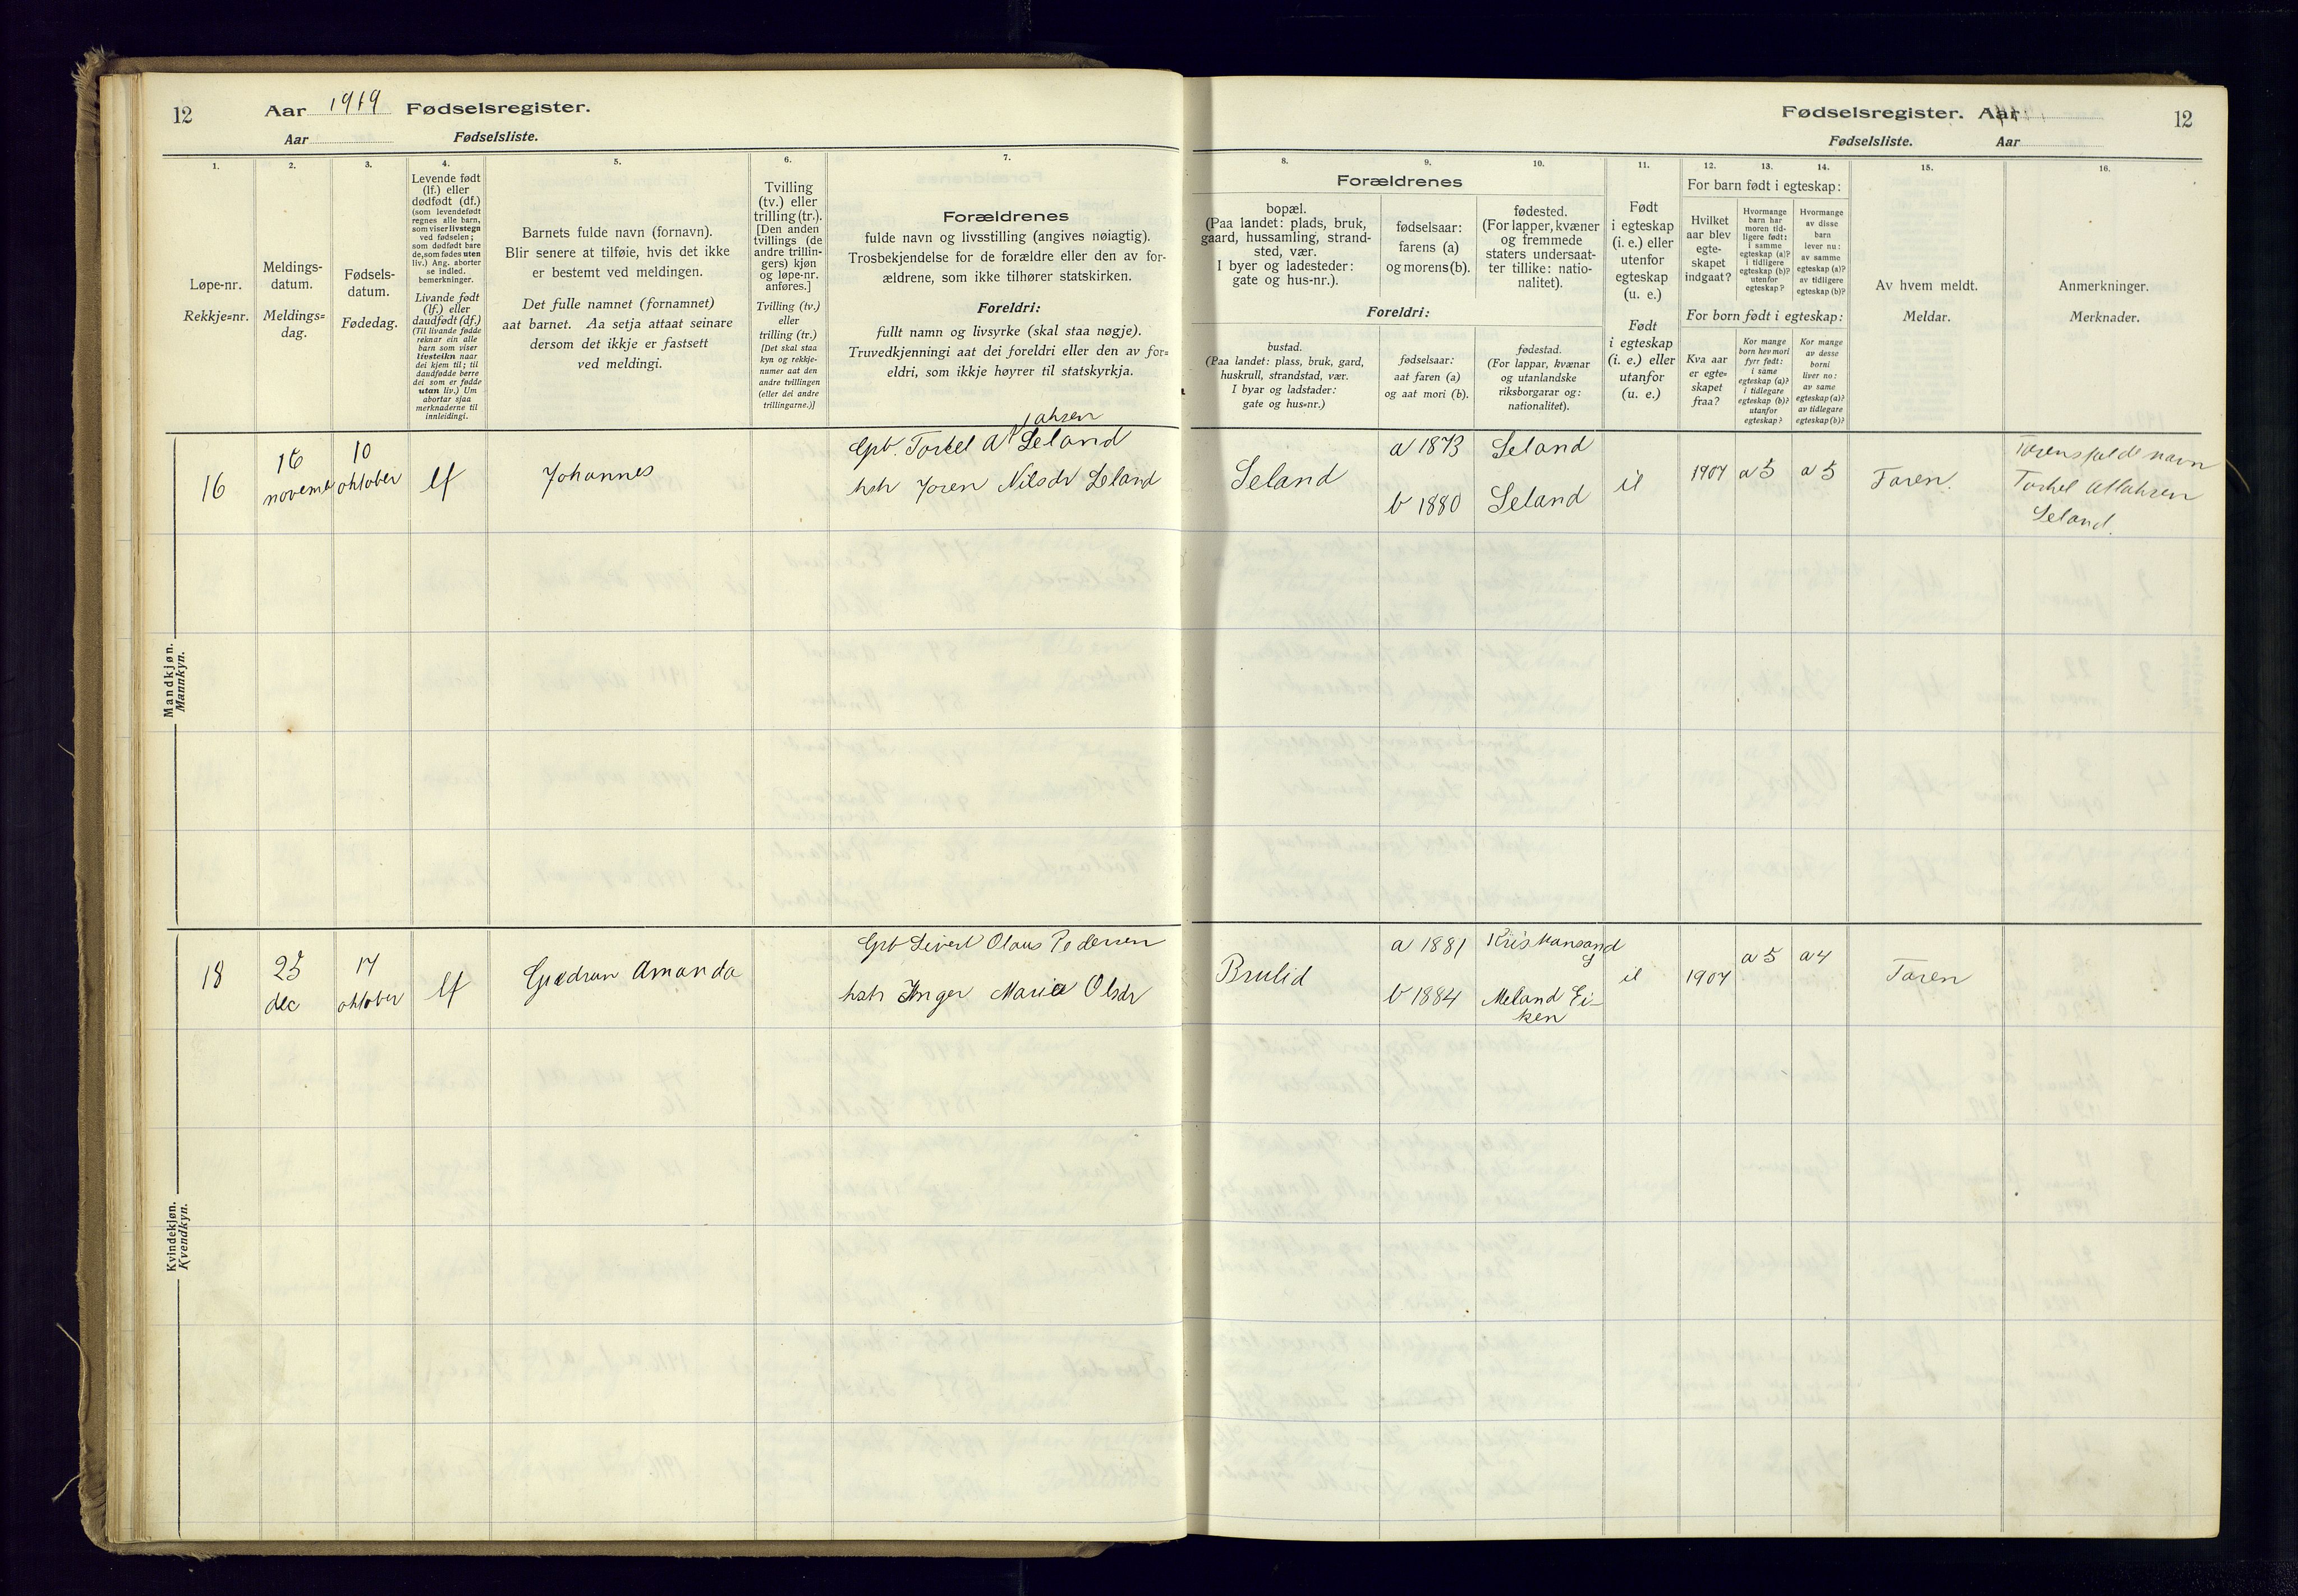 12
Aar 1919 Fødselsregister.
Aar Fødselsliste.
1.
Løpe-nr.
Rekkje=nr.
2.
Meldings-
datum.
Meldings=
dag.
3.
Fødsels-
datum.
Fødedag.
4.
Levende født
(lf.) eller
dødfødt (df.)
(som levendefødt
regnes alle barn,
som viser livstegn
ved fødselen;
som dødfødt bare
de, som fødes uten
liv.) Ang. aborter
se indled.
bemerkninger.
Livande født
(lf.) eller
daudfødt (df.)
(Til livande fødde
reknar ein alle
barn som viser
livsteikn naar
dei kjem til; til
daudfødde berre
dei som er fødde
utan liv.) Um
abortar sjaa
merknaderne til
innleidingi.
5.
Barnets fulde navn (fornavn).
Blir senere at tilføie, hvis det ikke
er bestemt ved meldingen.
Det fulle namnet (fornamnet)
aat barnet. Aa setja attaat seinare
dersom det ikkje er fastsett
ved meldingi.
6.
Tvilling
(tv.) eller
trilling (tr.).
[Den anden
tvillings (de
andre trillin-
gers) kjøn
og løpe-nr.
anføres.]
Tvilling (tv.)
eller
trilling (tr.)
[Det skal staa
kyn og rekkje-
numer aat den
andre tvillingen
(eller dei andre
trillingarne.)]
7.
Forældrenes
fulde navn og livsstilling (angives nøiagtig).
Trosbekjendelse for de forældre eller den av for-
ældrene, som ikke tilhører statskirken.
Foreldri:
fullt namn og livsyrke (skal staa nøgje).
Truvedkjenningi aat dei foreldri eller den av for=
eldri, som ikkje høyrer til statskyrkja.
Mandkjøn.
Mannkyn.
16
16
novemb
10
oktober
lf
Johannes
Jahsen
Gpb. Torkel At Seland
hsh Joren Nilsdr Seland
Kvindekjøn.
Kvendkyn.
18
25
dec
17
oktober
lf
Gudrun Amanda
Gpb Sivert Olaus Pedersen
hsh Inger Maria Olsdr
Fødselsregister. Aar
12
Fødselsliste. Aar
8.
Forældrenes
bopæl.
(Paa landet: plads, bruk,
gaard, hussamling, strand-
sted, vær.
I byer og ladesteder:
gate og hus-nr.).
Foreldri:
bustad.
(Paa landet: plass, bruk, gard,
huskrull, strandstad, vær.
I byar og ladstader:
gate og hus=nr.)
9.
fødselsaar:
farens (a)
og morens (b).
fødselsaar:
aat faren (a)
og aat mori (b).
10.
fødested.
(For lapper, kvæner
og fremmede
staters undersaat-
ter tillike: natio-
nalitet).
fødestad.
(For lappar, kvænar
og utanlandske
riksborgarar og:
nationalitet).
11.
Født
i egteskap
(i. e.) eller
utenfor
egteskap
(u. e.)
Født
i egteskap
(i. e.) eller
utanfor
(u. e.)
12.
13.
14.
For barn født i egteskap:
Hvilket
aar blev
egte-
skapet
indgaat?
Hvormange
barn har
moren tid-
ligere født:
i samme
egteskap (a)?
i tidligere
egteskap (b)?
utenfor
egteskap?
Hvormange
av disse
barn
lever nu:
av samme
egteskap (a)?
av tidligere
egteskap (b)?
For born født i egteskap:
Kva aar
er egte=
skapet
fraa?
Kor mange
born hev mori
fyrr født:
i same
egteskap (a)?
i tidlegare
egteskap (b)?
utanfor
egteskap?
Kor mange
av desse
borni
liver no:
av same
egteskap (a)?
av tidlegare
egteskap (b)?
15.
Av hvem meldt.
Meldar.
16.
Anmerkninger.
Merknader.
Seland
a 1873
b 1880
Seland
Seland
1907
a 5
a 5
Faren.
Farens fulde navn
Torkel Atlahsen
Seland.
Brulid
a 1881
b 1884
Kristiansand
S
Meland Ei-
ken
1907
a 5
a 4
Faren